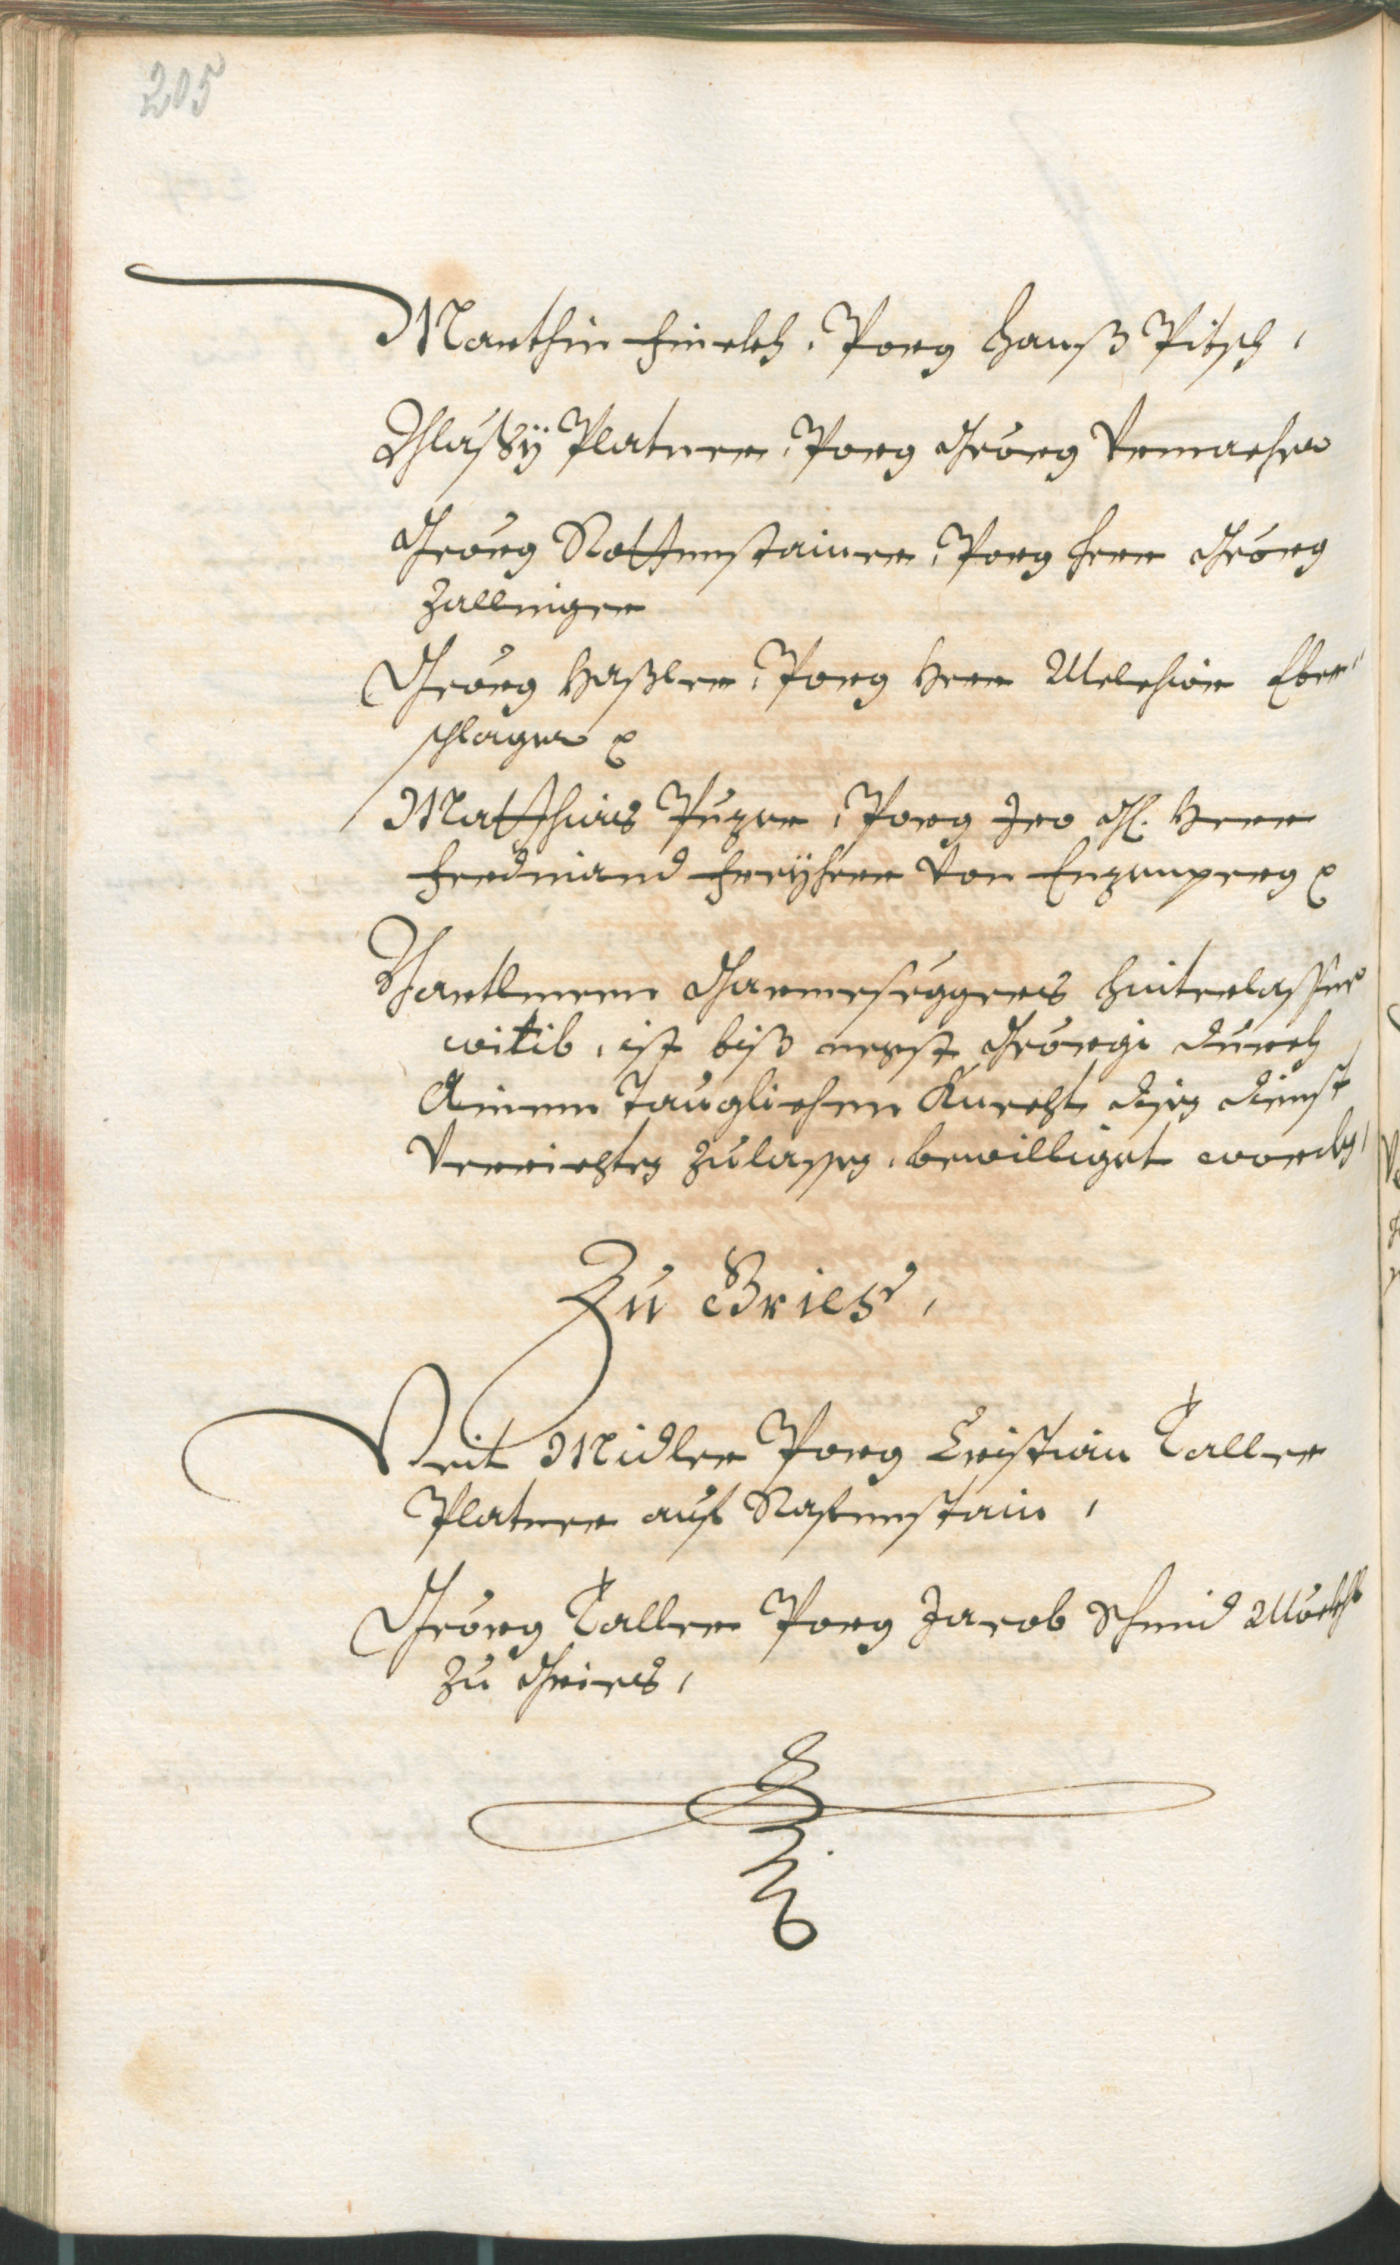 205
Marthin Finelch, Porg Hannß Pitsch,
Blaßy Platner, Porg Georg Vrmacher
Georg Rottenstainer, Porg Herr Georg
Zallinger
Georg Haßler, Porg Herr Melchior Eber-
schlager
Matthias Puzer, Porg Iro Gn. Herr
Ferdinand Freyherr von Enzenperg
Barthlmeen hinterlassne
witib, ist biß negst Georgi durch
Ainen Tauglichen Knecht disen dienst
Verrichten zulassen, bewilliget worden,
Zu Gries,
Veit Midler Porg Cristian Taller
Platner auf Rafenstain,
Georg Taller Porg Jacob Schmid
zu Gries,